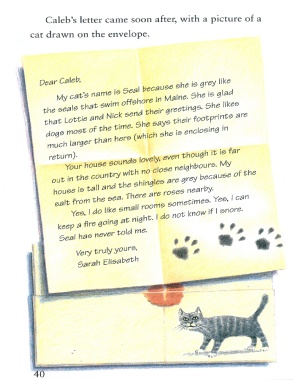 Caleb's letter came soon after, with a picture of a
cat drawn on the envelope.
Dear Caleb,
My cat's name is Seal because she is grey like
the seals that swim offshore in Maine. She is glad
that Lottie and Nick send their greetings. She likes
dogs most of the time. She says their footprints are
much larger than hers (which she is enclosing in
return).
Your house sounds lovely, even though it is far
out in the country with no close neighbours. My
house is tall and the shingles are grey because of the
salt from the sea. There are roses nearby.
Yes, I do like small rooms sometimes. Yes, I can
keep a fire going at night. I do not know if I snore.
Seal has never told me.
Very truly yours,
Sarah Elisabeth
40